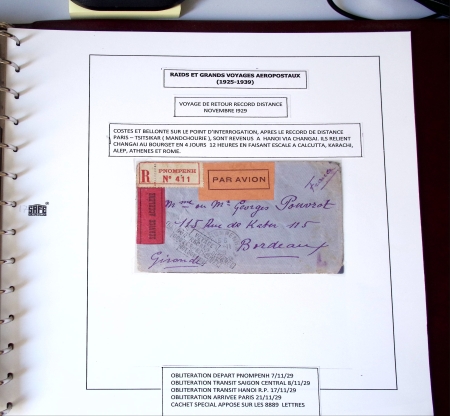 RAIDS ET GRANDS VOYAGES AEROPOSTAUX
(1925-1939)
VOYAGE DE RETOUR RECORD DISTANCE
NOVEMBRE I929
COSTES ET BELLONTE SUR LE POINT D'INTERROGATION, APRES LE RECORD DE DISTANCE
PARIS – TSITSIKAR ( MANDCHOURIE ), SONT REVENUS A HANOI VIA CHANGAI. ILS RELIENT
CHANGAI AU BOURGET EN 4 JOURS 12 HEURES EN FAISANT ESCALE A CALCUTTA, KARACHI,
ALEP, ATHENES ET ROME.
R
PNOMPENH
Nº 411
PAR AVION
SAFE
Mme ou Mr Georges
115 Rue de
115
Bordeaux
Gironde
OBLITERATION DEPART PNOMPENH 7/11/29
OBLITERATION TRANSIT SAIGON CENTRAL 8/11/29
OBLITERATION TRANSIT HANOI R.P. 17/11/29
OBLITERATION ARRIVEE PARIS 21/11/29
CACHET SPECIAL APPOSE SUR LES 8889 LETTRES